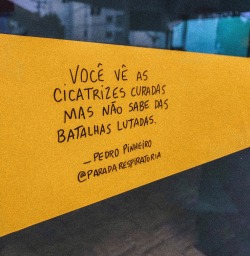 VOCÊ VÊ AS
CICATRIZES CURADAS
MAS NÃO SABE DAS
BATALHAS LUTADAS.
_PEDRO PINHEIRO
@PARADARESPIRATORIA